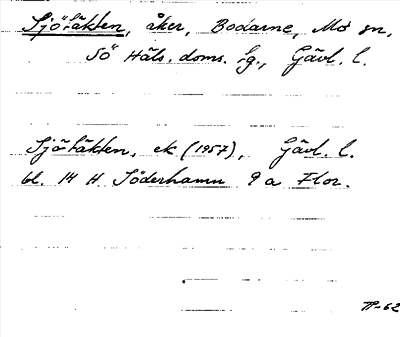 Sjötäkten, åker, Bodarne, Mo sn,
SÖ Häls. doms. fg., Gävl. l.
Sjötäkten, ek. (1957), Gävl. l.
bl. 14 H Söderhamn 9 a Flor.
TP-62